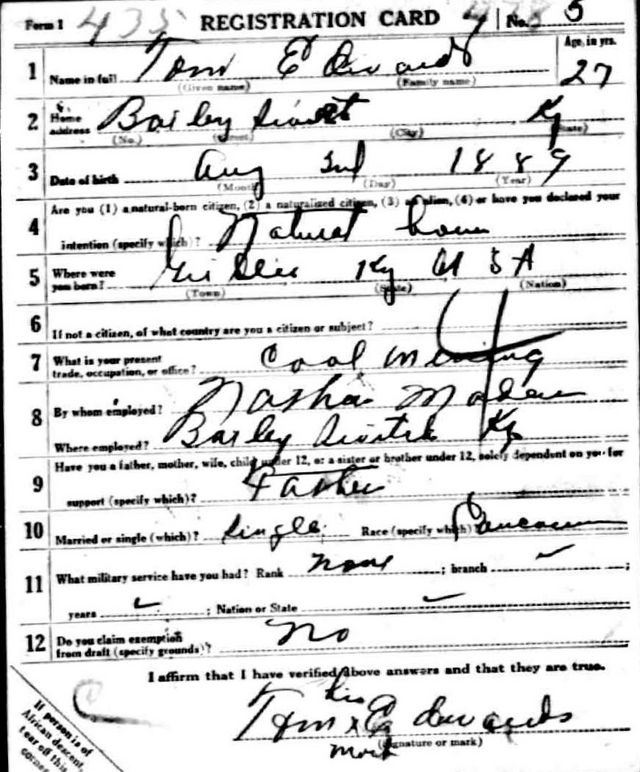 Form 1 435 REGISTRATION CARD No. 5
1 Name in full Tom Edwards Age, in yrs. 27
(Given name) (Family name)
2 Home address Barley Ky
(No.) (Street) (City) (State)
3 Date of birth Aug 3rd 1889
(Month) (Day) (Year)
4 Are you (1) a natural-born citizen, (2) a naturalized citizen, (3) an alien, (4) or have you declared your
intention (specify which)? Natural born
5 Where were you born? Ky U S A
(Town) (State) (Nation)
6 If not a citizen, of what country are you a citizen or subject?
7 What is your present trade, occupation, or office? Coal Mining
8 By whom employed?
Where employed? Barley Ky
9 Have you a father, mother, wife, child under 12, or a sister or brother under 12, solely dependent on you for
support (specify which)? Father
10 Married or single (which)? Single Race (specify which)? Caucasian
11 What military service have you had? Rank none ; branch ;
years ; Nation or State
12 Do you claim exemption from draft (specify grounds)? No
I affirm that I have verified above answers and that they are true.
his
Tom x Edwards
(Signature or mark)
mark
If person is of
African descent,
tear off this
corner